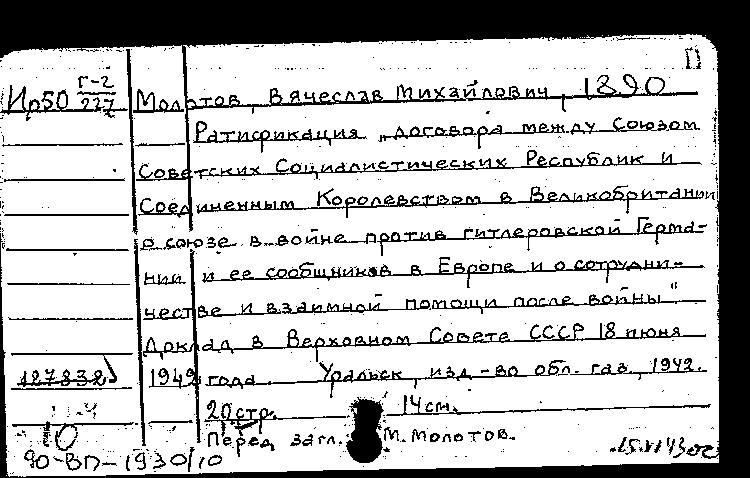 Ир50 Г-2/227 Молотов, Вячеслав Михайлович, 1890
Ратификация „договора между Союзом
Советских Социалистических Республик и
Соединенным Королевством в Великобритании
о союзе в войне против гитлеровской Герма-
нии и ее сообщников в Европе и о сотрудни-
честве и взаимной помощи после войны"
Доклад в Верховном Совете СССР 18 июня
127832 1942 года. Уральск, изд-во обл. газ., 1942.
20 стр. 14 см.
10 Перед загл. М. Молотов.
90-ВП-1930/10